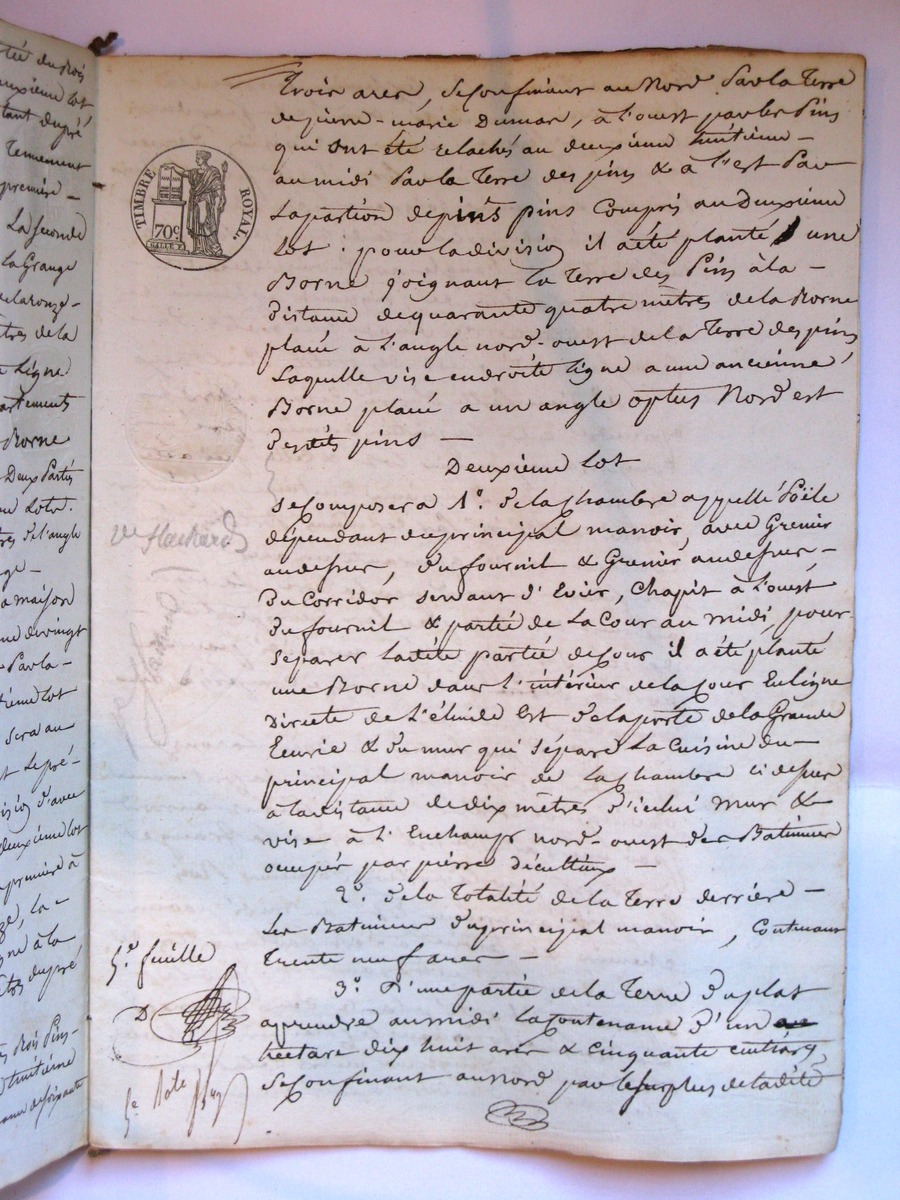 trois ares, se confinant au Nord par la Terre
de pierre-marie Dumas, à l'ouest par les Pins
qui ont été relachés au deuxieme huitieme -
au midi Par la Terre des pins & à l'est Par
La partion de pins Compris au Deuxieme
Lot : pour la division il a été planté une
Borne joignant la Terre des Pins à la -
Distance de quarante quatre mètres de la Borne
placée à L'angle nord-ouest de la Terre des pins
Laquelle vise en droite ligne a une ancienne
Borne placée a un angle plus Nord est
desdits pins —
Deuxieme lot
se Composera 1°. de la Chambre appellé Poile
dépendant du principal manoir, avec Grenier
au dessus, du fournil & Grenier au dessus, -
Du Corridor servant d'Evier, Chapit à L'ouest
du fournil & partie de La Cour au midi, pour
séparer ladite partie de Cour il a été planté
une Borne dans l'intérieur de la Cour En ligne
Directe de L'Est de la porte de la Grande
Ecurie & du mur qui sépare La Cuisine du -
principal manoir de La Chambre ci dessus
à la distance de dix mètres d'icelui mur &
vise à l' nord-ouest des Batimens
occupés par pierre
2°. de la Totalité de la Terre derrière -
Les Batimens du principal manoir, Contenant
Trente neuf ares -
3°. D'une partie de la Terre du plat
a prendre au midi La Contenance d'un
hectare dix huit ares & Cinquante Centiares,
se Confinant au Nord par le surplus de ladite
TIMBRE ROYAL.
70c
5.e feuille
D
5e Role
tie du Bois
deuxieme lot
Tennement
premiere -
La Seconde
La Grange
tres de la
Ligne
Borne
Deux Parties
de l'angle
maison
Par la -
sera au
deuxieme lot
premiere à
du pré
trois Pins
huitieme